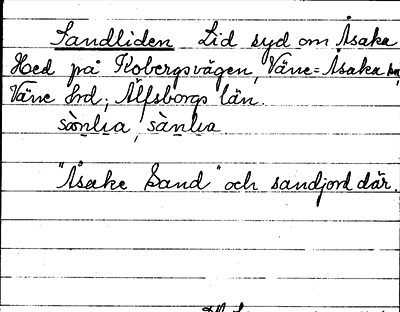 Sandliden Lid syd om Åsaka
Hed på Kobergsvägen, Väne-Åsaka sn,
Väne hd, Älfsborgs län.
sànlıa, sànlıa
"Åsake Sand" och sandjord där.